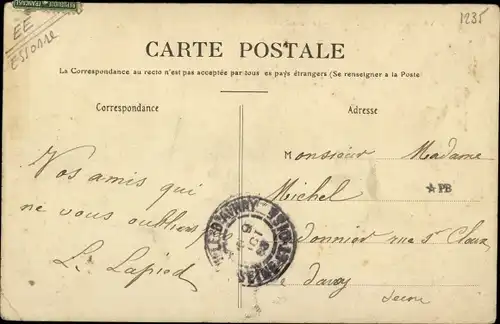 REPUBLIQUE FRANCAISE
EE
Essonne
1235
CARTE POSTALE
La Correspondance au recto n'est pas acceptée par tous es pays étrangers (Se renseigner à la Poste
Correspondance
Adresse
Vos amis qui
ne vous oublient
L. Lapied
Monsieur Madame
Michel
★PB
donnier rue St Cloux
davay
Seine